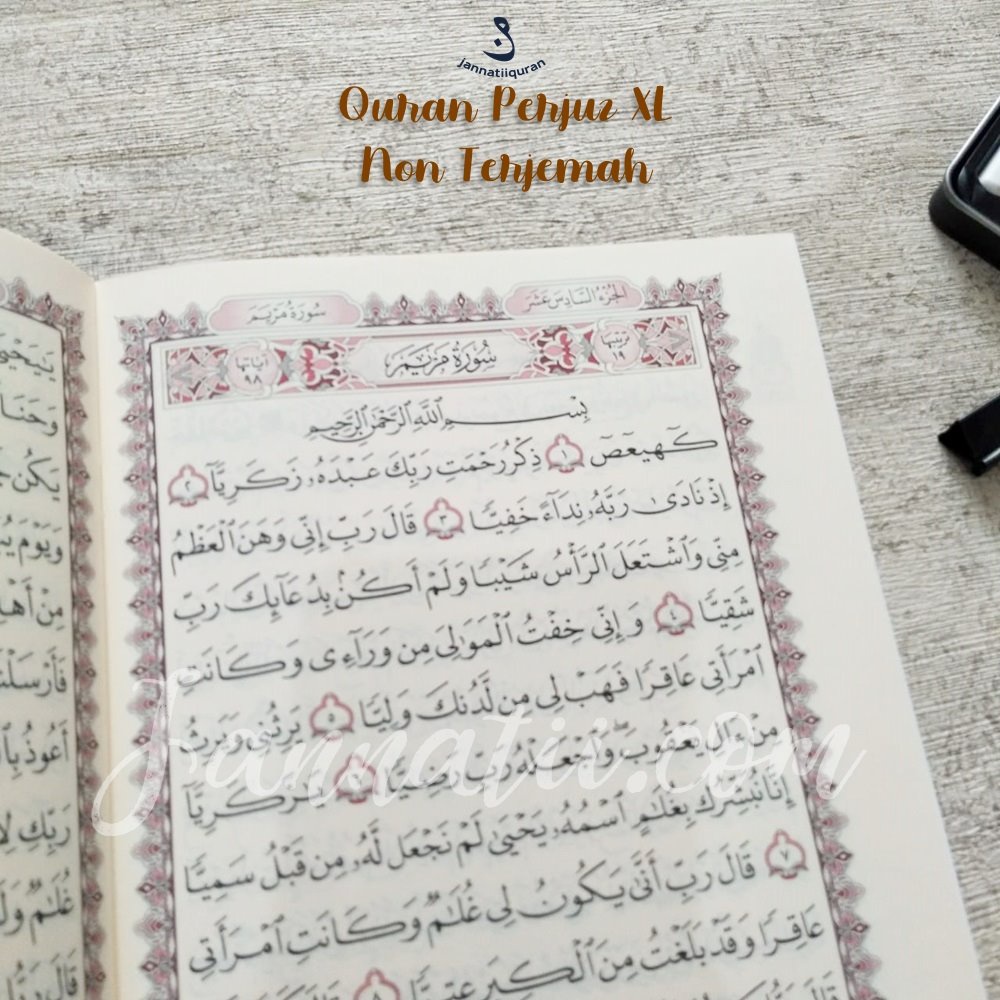 jannatiiquran
Quran Perjuz XL
Non Terjemah
الجزء السادس عشر
سورة مريم
ترتيبها ١٩
سُورَةُ مَرْيَمَ
آياتها ٩٨
بِسْمِ ٱللَّهِ ٱلرَّحْمَٰنِ ٱلرَّحِيمِ
كٓهيعٓصٓ ١ ذِكْرُ رَحْمَتِ رَبِّكَ عَبْدَهُۥ زَكَرِيَّآ ٢
إِذْ نَادَىٰ رَبَّهُۥ نِدَآءً خَفِيًّا ٣ قَالَ رَبِّ إِنِّى وَهَنَ ٱلْعَظْمُ
مِنِّى وَٱشْتَعَلَ ٱلرَّأْسُ شَيْبًا وَلَمْ أَكُنۢ بِدُعَآئِكَ رَبِّ
شَقِيًّا ٤ وَإِنِّى خِفْتُ ٱلْمَوَٰلِىَ مِن وَرَآءِى وَكَانَتِ
ٱمْرَأَتِى عَاقِرًا فَهَبْ لِى مِن لَّدُنكَ وَلِيًّا ٥ يَرِثُنِى وَيَرِثُ
مِنْ ءَالِ يَعْقُوبَ ۖ وَٱجْعَلْهُ رَبِّ رَضِيًّا ٦ يَٰزَكَرِيَّآ
إِنَّا نُبَشِّرُكَ بِغُلَٰمٍ ٱسْمُهُۥ يَحْيَىٰ لَمْ نَجْعَل لَّهُۥ مِن قَبْلُ سَمِيًّا
٧ قَالَ رَبِّ أَنَّىٰ يَكُونُ لِى غُلَٰمٌ وَكَانَتِ ٱمْرَأَتِى
عَاقِرًا وَقَدْ بَلَغْتُ مِنَ ٱلْكِبَرِ عِتِيًّا ٨
Jannatii.com